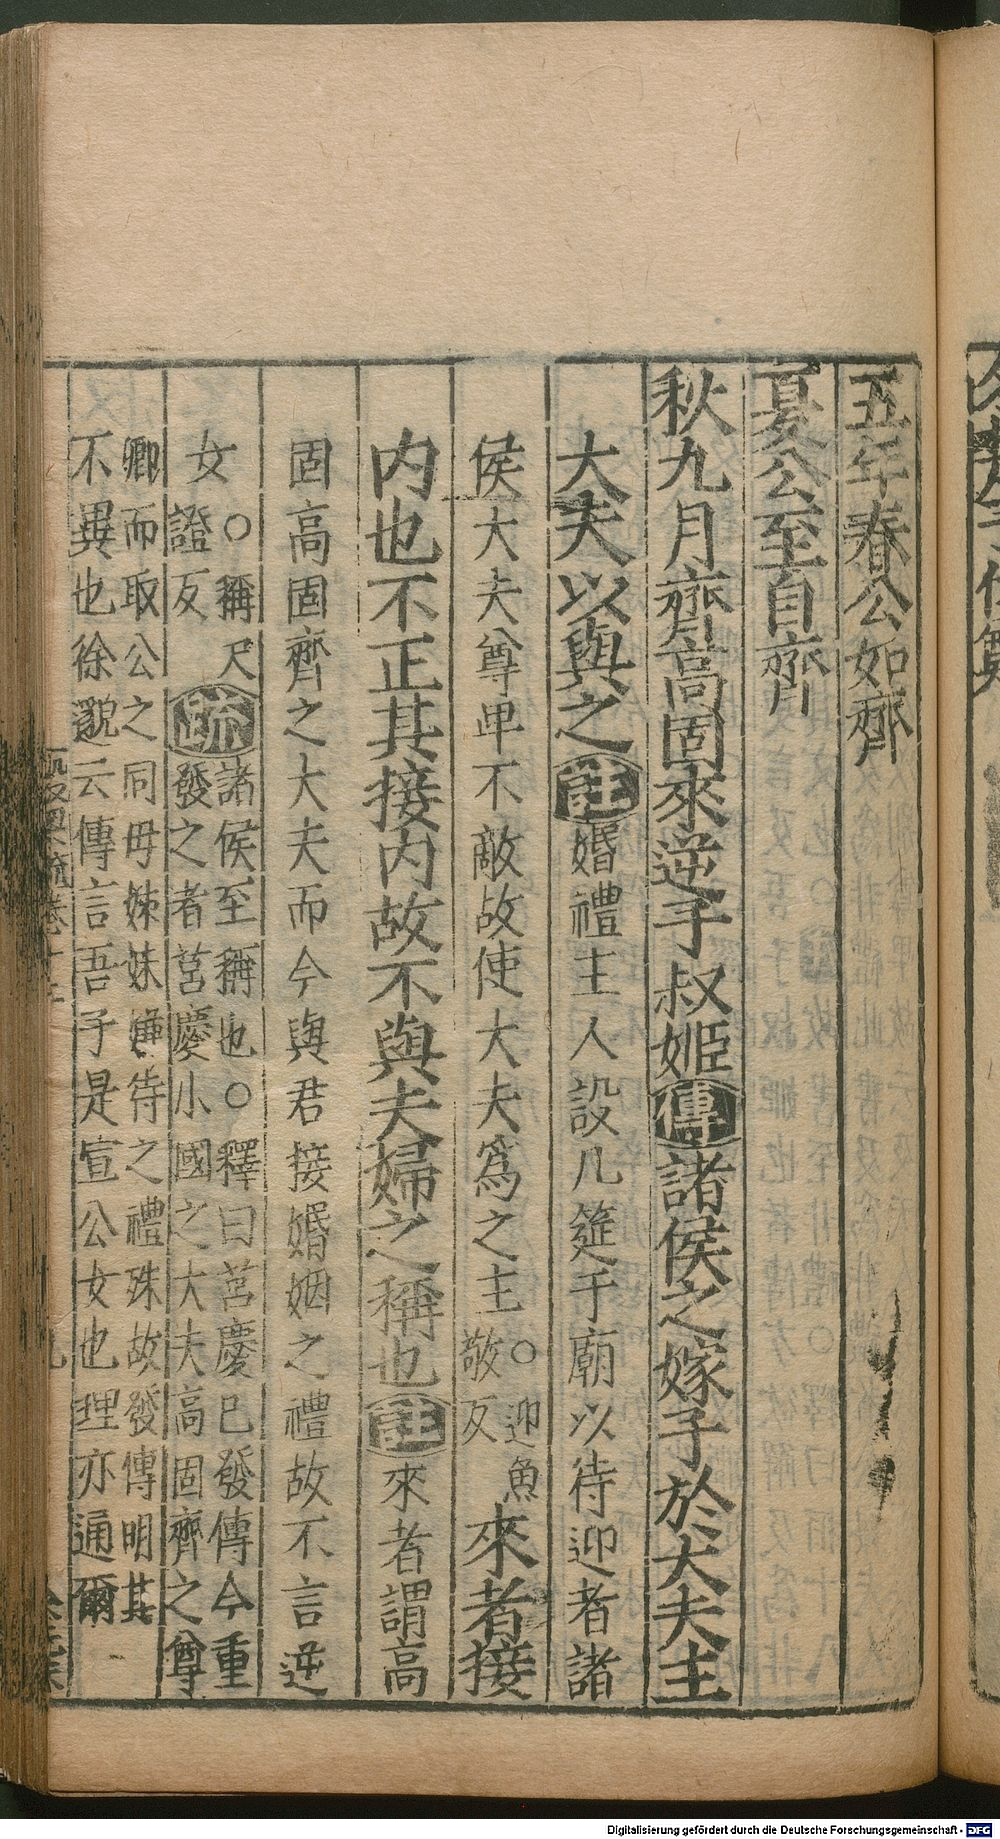 五年春公如齊
夏公至自齊
秋九月齊高固來逆子叔姬傳諸侯之嫁子於大夫主
大夫以與之註婚禮主人設几筵于廟以待迎者諸
侯大夫尊卑不敵故使大夫爲之主○迎魚敬反來者接
内也不正其接内故不與夫婦之稱也註來者謂高
固高固齊之大夫而今與君接婚姻之禮故不言逆
女○稱尺證反疏諸侯至稱也○釋曰莒慶已發傳今重
發之者莒慶小國之大夫高固齊之尊
卿而取公之同母姊妹嫌待之禮殊故發傳明其
不異也徐邈云傳言吾子是宣公女也理亦通爾
Digitalisierung gefördert durch die Deutsche Forschungsgemeinschaft - DFG